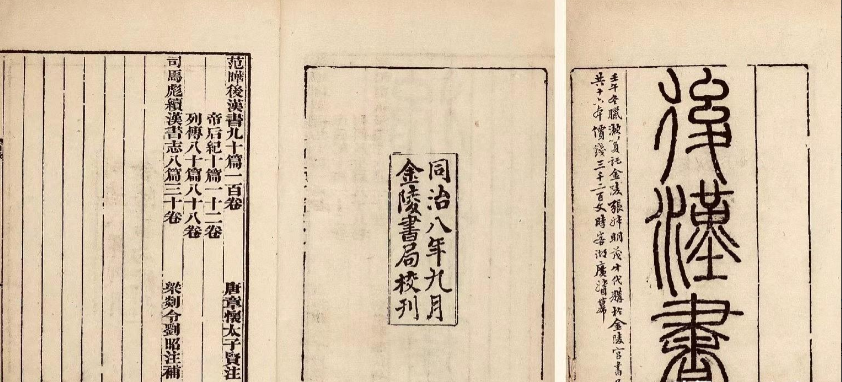 後漢書
壬午冬臘 託金陵張 明 代購於金陵官書
共十六本 價錢三千二百文時客湖廣督幕
同治八年九月
金陵書局校刊
范曄後漢書九十篇一百卷 唐章懷太子賢注
帝后紀十篇一十二卷
列傳八十篇八十八卷
司馬彪續漢書志八篇三十卷 梁剡令劉昭注補